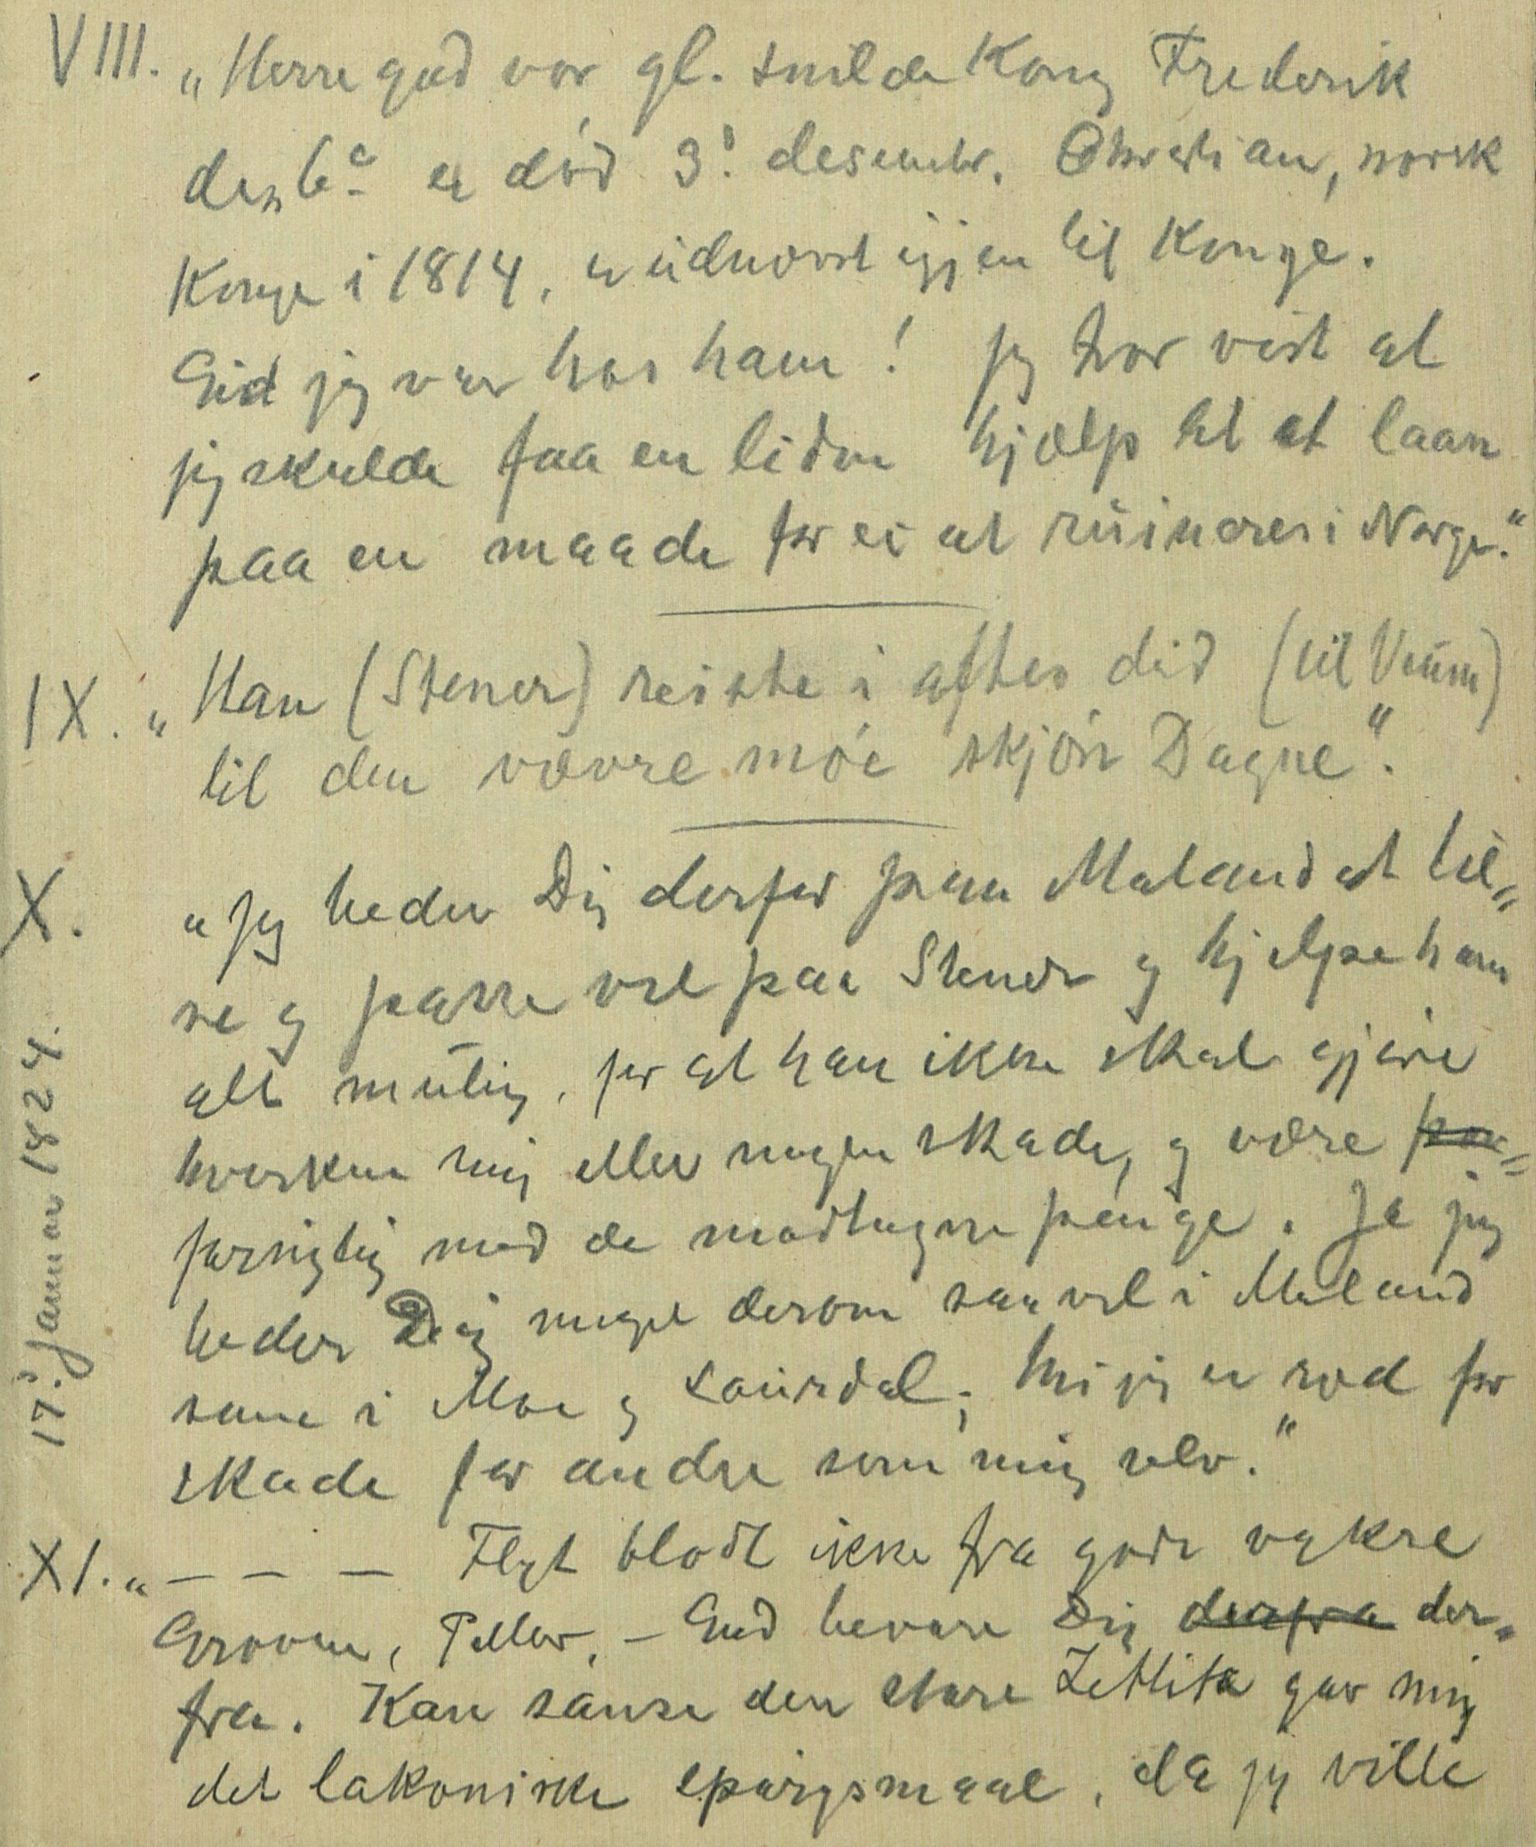 VIII. „Herre gud vor gl. snilde Kong Frederik
den 6e er død 3! desembr. Christian, norsk
Konge i 1814, er udnævnt igjen til Konge.
Gid jeg var hos ham! Jeg tror vist at
jeg skulde faa en liden hjælp til et laan
paa en maade for ei at ruineres i Norge."
IX. „Han (Stener) reiste i aftes did (til Veum)
til den vævre møe skjøn Dagne".
X. „Jeg beder Dig derfor paa Maland at til„
se og passe vel paa Stener og hjelpe ham
alt mulig, for at han ikke skal gjøre
hverken mig eller nogen skade, og være for„
forsigtig med de modtagne penge. Ja jeg
beder Dig meget derom saavel i Maland
som i Moe og Laurdal; thi jeg er ræd for
skade for andre som mig selv."
17! Januar 1824.
XI. „— — — Flyt blodt ikke fra gode vakre
Groven, Peller, — Gud bevare Dig derfra der„
fra. Kan sanse den store Zetlitz gav mig
det lakoniske spørgsmaal, da jeg vilde